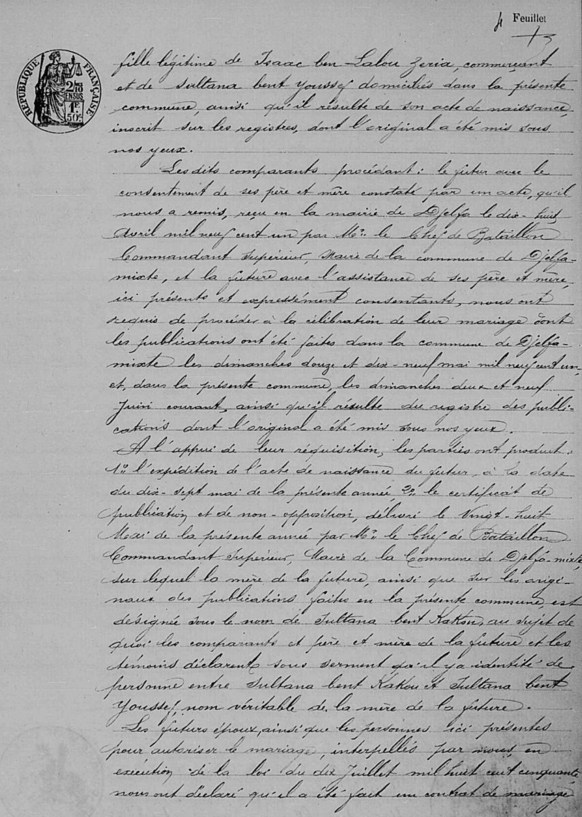 4 Feuillet
RÉPUBLIQUE FRANÇAISE
fille légitime de Isaac ben Lalou Zeria, commerçant
et de Sultana bent Youssef domiciliés dans la présente
commune, ainsi qu'il résulte de son acte de naissance,
inscrit sur les registres, dont l'original a été mis sous
nos yeux.
Les dits comparants procédant : le futur avec le
consentement de ses père et mère constaté par un acte, qu'il
nous a remis, reçu en la mairie de Djelfa le dix-huit
Avril mil neuf cent un par Mr. le Chef de Bataillon
Commandant Supérieur, Maire de la commune de Djelfa-
mixte, et la future avec l'assistance de ses père et mère,
ici présents et expressément consentants, nous ont
requis de procéder à la célébration de leur mariage dont
les publications ont été faites dans la commune de Djelfa-
mixte les dimanches douze et dix-neuf mai mil neuf cent un,
et, dans la présente commune, les dimanches deux et neuf
Juin courant, ainsi qu'il résulte du registre des publi-
cations dont l'original a été mis sous nos yeux.
A l'appui de leur réquisition, les parties ont produit :
1º l'expédition de l'acte de naissance du futur, à la date
du dix-sept mai de la présente année, 2º le certificat de
publication et de non-opposition, délivré le Vingt-huit
Mai de la présente année par Mr. le Chef de Bataillon
Commandant Supérieur, Maire de la Commune de Djelfa-mixte
sur lequel la mère de la future, ainsi que sur les origi-
naux des publications faites en la présente commune, est
désignée sous le nom de Sultana bent Kakou, au sujet de
quoi les comparants et père et mère de la future et les
témoins déclarent sous serment qu'il y a identité de
personne entre Sultana bent Kakou et Sultana bent
Youssef, nom véritable de la mère de la future.
Les futurs époux, ainsi que les personnes ici présentes
pour autoriser le mariage, interpellés par nous, en
exécution de la loi du dix Juillet mil huit cent cinquante
nous ont déclaré qu'il a été fait un contrat de mariage